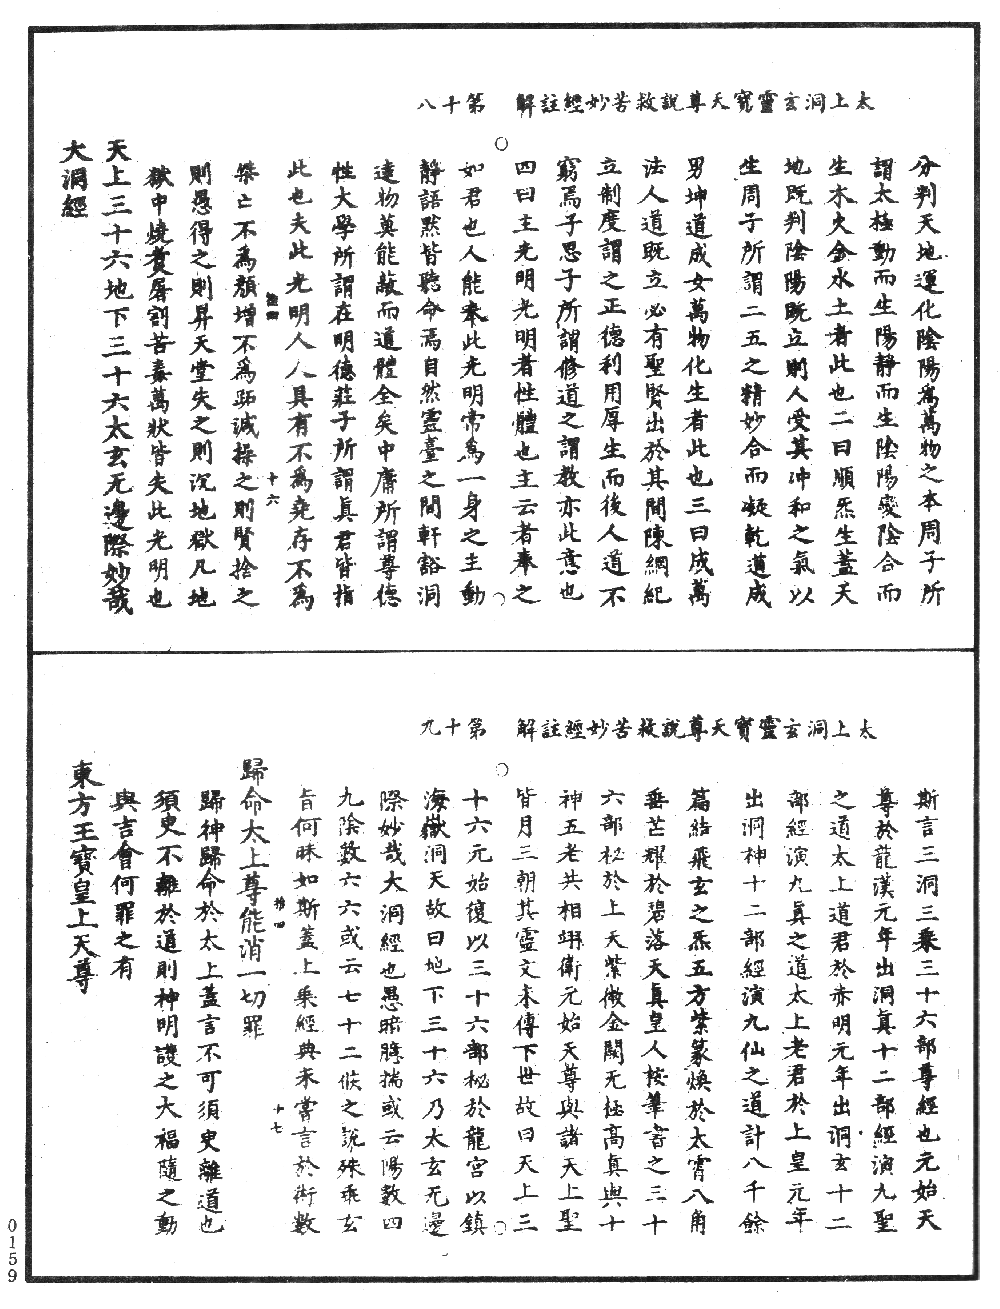 太上洞玄靈寶天尊說救苦妙經註解　第十八
分判天地運化陰陽為萬物之本周子所
謂太極動而生陽靜而生陰陽變陰合而
生木火金水土者此也二曰順炁生蓋天
地既判陰陽既立則人受其冲和之氣以
生周子所謂二五之精妙合而凝乾道成
男坤道成女萬物化生者此也三曰成萬
法人道既立必有聖賢出於其間陳綱紀
立制度謂之正德利用厚生而後人道不
窮焉子思子所謂修道之謂教亦此意也
四曰主光明光明者性體也主云者奉之
如君也人能奉此光明常為一身之主動
靜語默皆聽命焉自然靈臺之間軒豁洞
達物莫能蔽而道體全矣中庸所謂尊德
性大學所謂在明德莊子所謂真君皆指
此也夫此光明人人具有不為堯存不為
十六
桀亡不為顏增不為跖減操之則賢捨之
則愚得之則昇天堂失之則沉地獄凡地
獄中燒煮屠割苦毒萬狀皆失此光明也
天上三十六地下三十六太玄无邊際妙哉
大洞經
太上洞玄靈寶天尊說救苦妙經註解　第十九
斯言三洞三乘三十六部尊經也元始天
尊於龍漢元年出洞真十二部經演九聖
之道太上道君於赤明元年出洞玄十二
部經演九真之道太上老君於上皇元年
出洞神十二部經演九仙之道計八千餘
篇結飛玄之炁五方紫篆煥於太霄八角
垂芒耀於碧落天真皇人按筆書之三十
六部祕於上天紫微金闕无極高真與十
神五老共相翊衛元始天尊與諸天上聖
皆月三朝其靈文未傳下世故曰天上三
十六元始復以三十六部祕於龍宮以鎮
海嶽洞天故曰地下三十六乃太玄无邊
際妙哉大洞經也愚暗臆揣或云陽數四
九陰數六六或云七十二候之說殊乖玄
旨何昧如斯蓋上乘經典未嘗言於術數
十七
歸命太上尊能消一切罪
歸神歸命於太上蓋言不可須臾離道也
須臾不離於道則神明護之大福隨之動
與吉會何罪之有
東方玉寶皇上天尊
0159